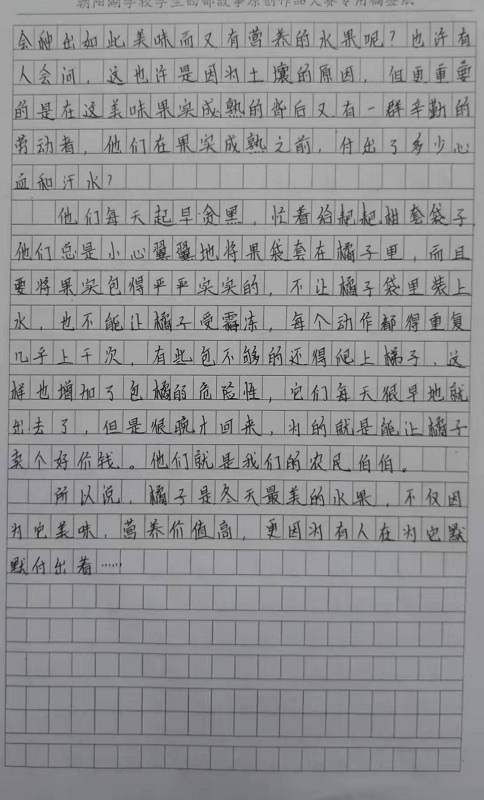 朝阳湖学校学生的部故事原创作品大赛专用稿签纸
会种出如此美味而又有营养的水果呢？也许有
人会问，这也许是因为土壤的原因，但更重要
的是在这美味果实成熟的背后又有一群辛勤的
劳动者，他们在果实成熟之前，付出了多少心
血和汗水？
他们每天起早贪黑，忙着给耙耙柑套袋子，
他们总是小心翼翼地将果袋套在橘子里，而且
要将果实包得严严实实的，不让橘子袋里装上
水，也不能让橘子受霜冻，每个动作都得重复
几乎上千次，有些包不够的还得爬上梯子，这
样也增加了包橘的危险性，它们每天很早地就
出去了，但是很晚才回来，为的就是能让橘子
卖个好价钱。他们就是我们的农民伯伯。
所以说，橘子是冬天最美的水果，不仅因
为它美味，营养价值高，更因为有人在为它默
默付出着……